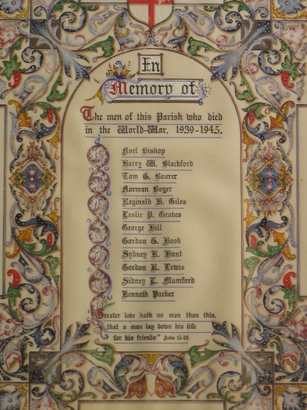 In
Memory of
The men of this Parish who died
in the World-War, 1939-1945.
Noel Bishop
Harry W. Blackford
Tom G. Boarer
Norman Boger
Reginald H. Giles
Leslie P. Graves
George Hill
Gordon G. Hook
Sydney R. Hunt
Gordon K. Lewis
Sidney L. Mumford
Kenneth Parker
Greater love hath no man than this,
that a man lay down his life
for his friends"